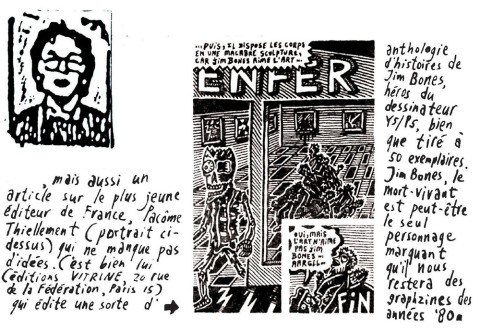 , mais aussi un
article sur le plus jeune
éditeur de France, Pacôme
Thiellement (portrait ci-
dessus) qui ne manque pas
d'idées. C'est bien lui
(éditions VITRINE, 20 rue
de la Fédération, Paris 15)
qui édite une sorte d' ➡
...PUIS, IL DISPOSE LES CORPS
EN UNE MACABRE SCULPTURE,
CAR JIM BONES AIME L'ART...
ENFER
OUI, MAIS
L'ART N'AIME
PAS JIM
BONES...
ARRGLL...
FIN
anthologie
d'histoires de
Jim Bones,
héros du
dessinateur
Y5/P5, bien
que tiré à
50 exemplaires.
Jim Bones, le
mort-vivant
est peut-être
le seul
personnage
marquant
qu'il nous
restera des
graphzines des
années '80■